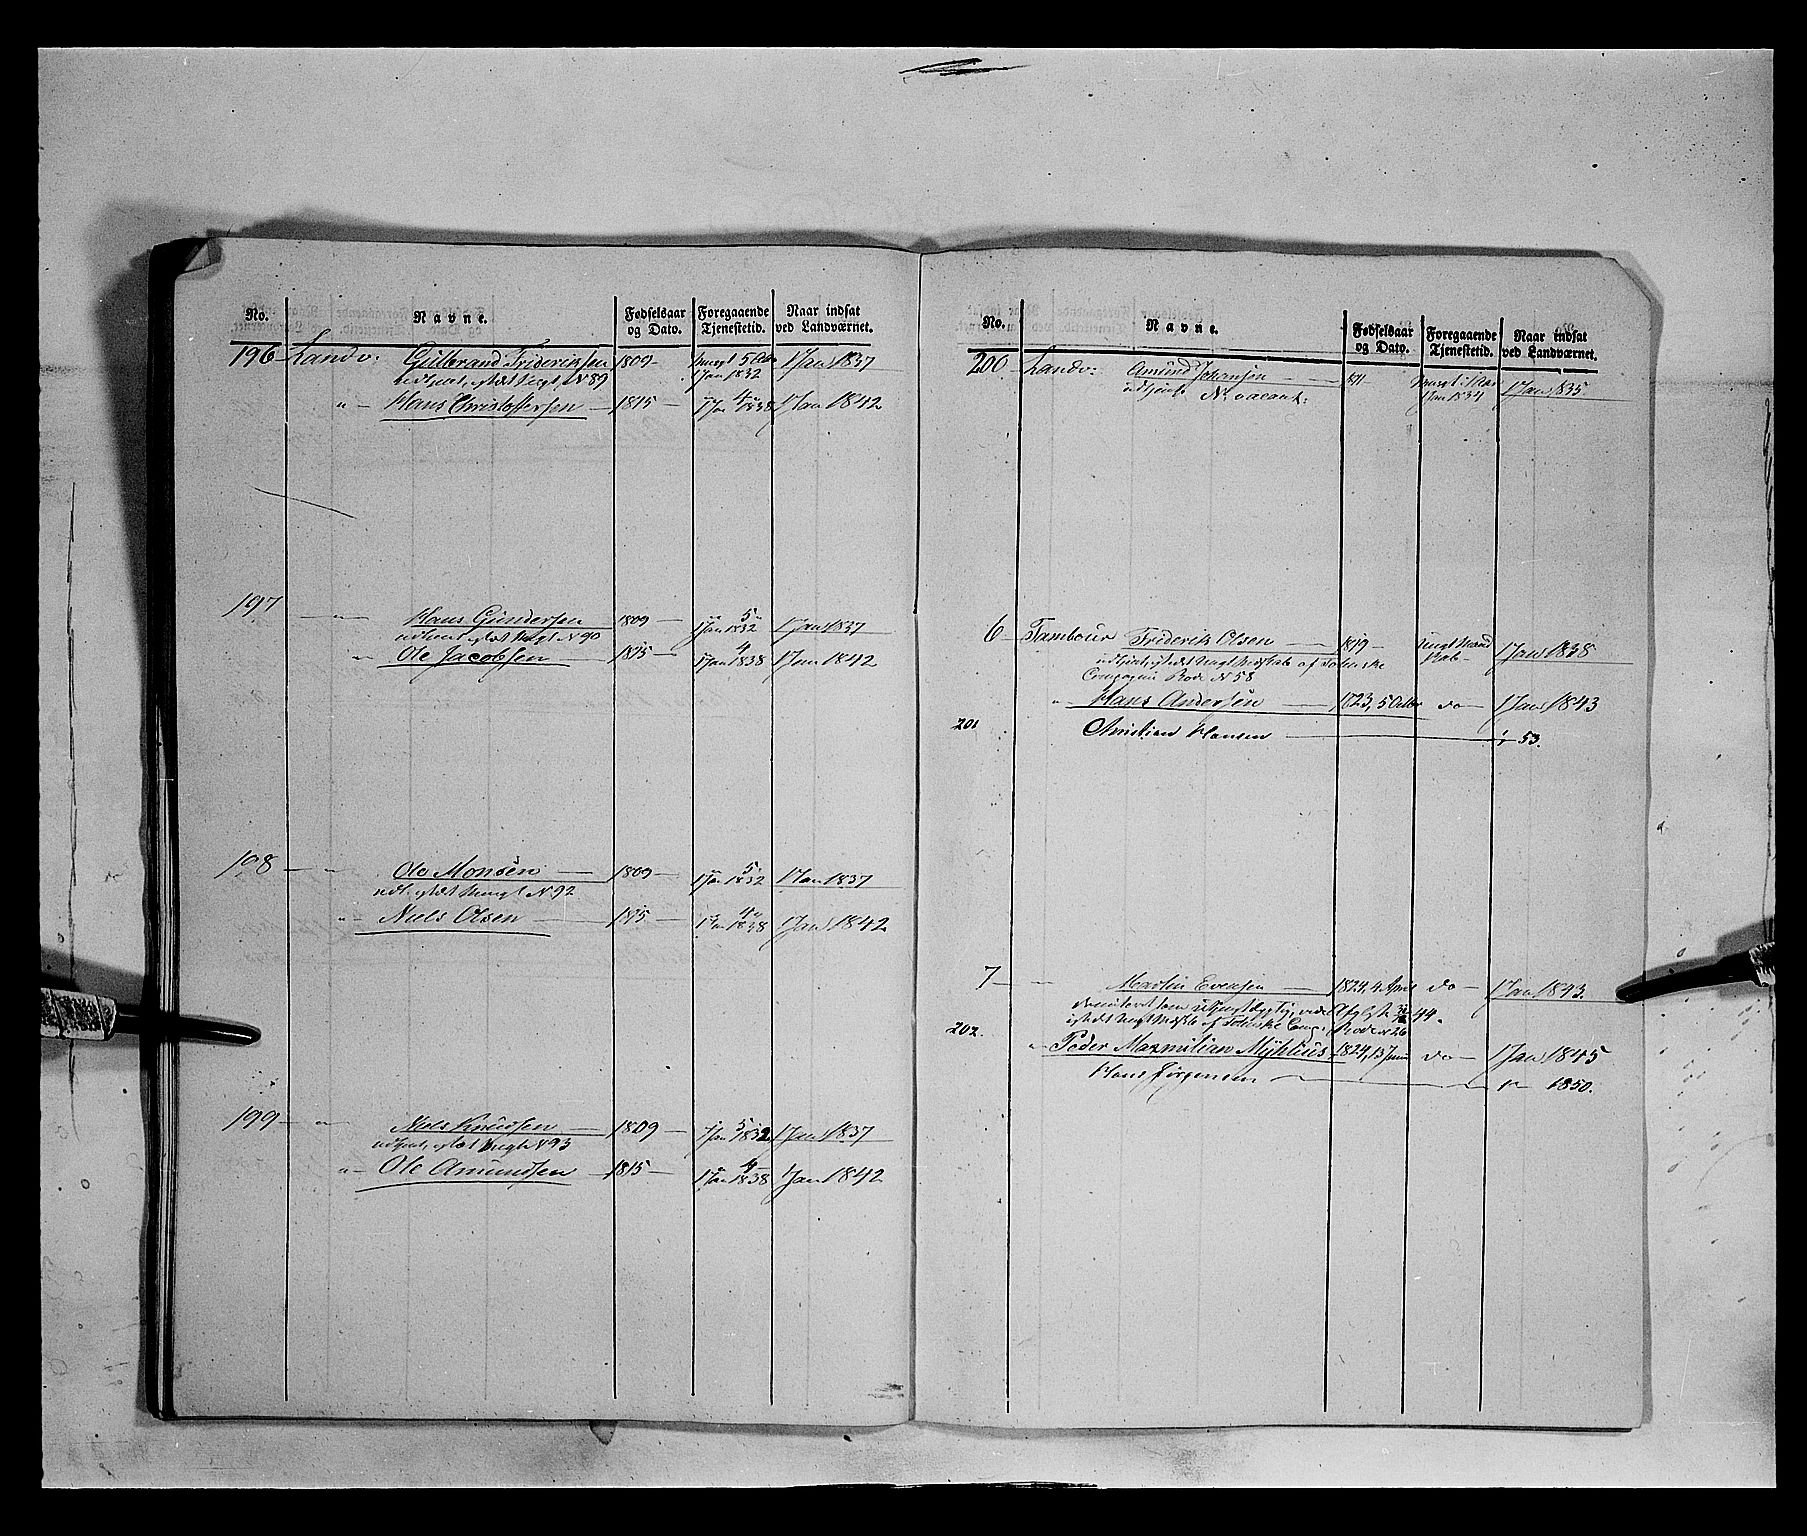 No. Navne. Fødselsaar og Dato. Foregaaende Tjenestetid. Naar indsat ved Landværnet.
196 Landv: Gulbrand Frideriksen 1809 — 5 1 Jan 1832 1 Jan 1837
udtjent, istæt N 89
" Hans Christophersen — 1815 — 4 1 Jan 1838 1 Jan 1842
197 — " — Hans Gundersen 1809 — 5 1 Jan 1832 1 Jan 1837
udtjent, istæt N 90
" Ole Jacobsen — 1815 — 4 1 Jan 1838 1 Jan 1842
198 — " — Ole Monsen — 1809 — 5 1 Jan 1832 1 Jan 1837
udt. istæt N 92
" Niels Olsen — 1815 — 4 1 Jan 1838 1 Jan 1842
199 — " — Niels Knudsen — 1809 — 5 1 Jan 1832 1 Jan 1837
udtjent, istæt N 93
" Ole Amundsen — 1815 — 4 1 Jan 1838 1 Jan 1842
No. Navne. Fødselsaar og Dato. Foregaaende Tjenestetid. Naar indsat ved Landværnet.
200 Landv: Amund Johansen — 1811 — 1 Jan 1834 1 Jan 1835.
udtjent. N. vacant.
6 Tambour Friderik Olsen — 1819 — 1 Jan 1838
udtjent, istedet af
Compagni Rode N 58
" Hans Andersen — 1823, 5 Octbr do — 1 Jan 1843
201 Christian Hansen — 53.
7 — " — Martin Evensen — 1824. 4. April do — 1 Jan 1843.
44.
istedet af Comp: Rode N 26
202. " Peder Maxmilian Myhlius 1824, 13 Juni do — 1 Jan 1845
Hans Jørgensen — " 1850.